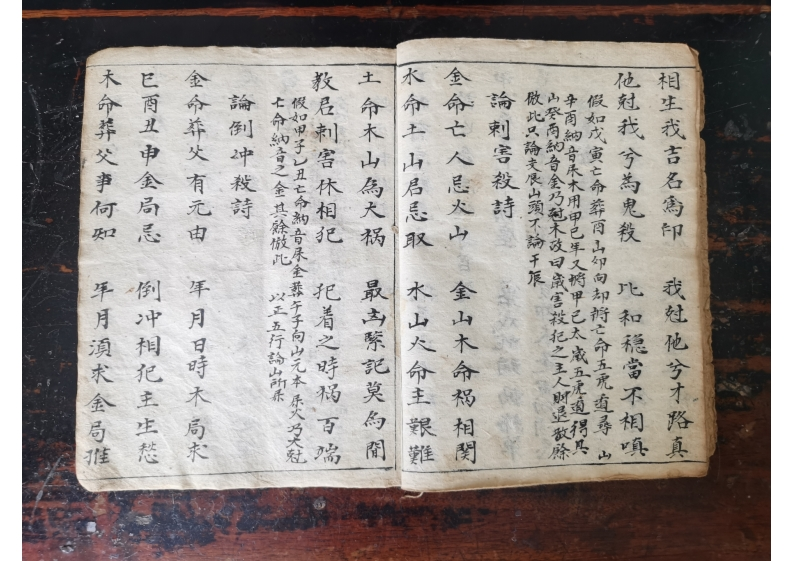 相生我吉名為印　我尅他兮才路真
他尅我兮為鬼殺　比和穩當不相嗔
假如戊寅亡命葬酉山卯向却将亡命五虎遁尋
辛酉納音屬木用甲己年又将甲己太歲五虎遁得其
山癸酉納音金乃尅木故曰歲害殺犯之主人財退敗餘
倣此只論老艮山頭不論干
論刺害殺詩
金命亡人忌火山　金山木命禍相関
水命土山君忌取　水山火命主艱難
土命木山為大禍　最凶緊記莫為閒
教君刺害休相犯　犯着之時禍百端
假如甲子乙丑亡命納音屬金葬午子向山元本屬火乃火尅
亡命納音之金其餘倣此　以正五行論山所屬
論倒冲殺詩
金命葬父有元由　年月日時木局求
巳酉丑申金局忌　倒冲相犯主生愁
木命葬父事何如　年月須求金局推